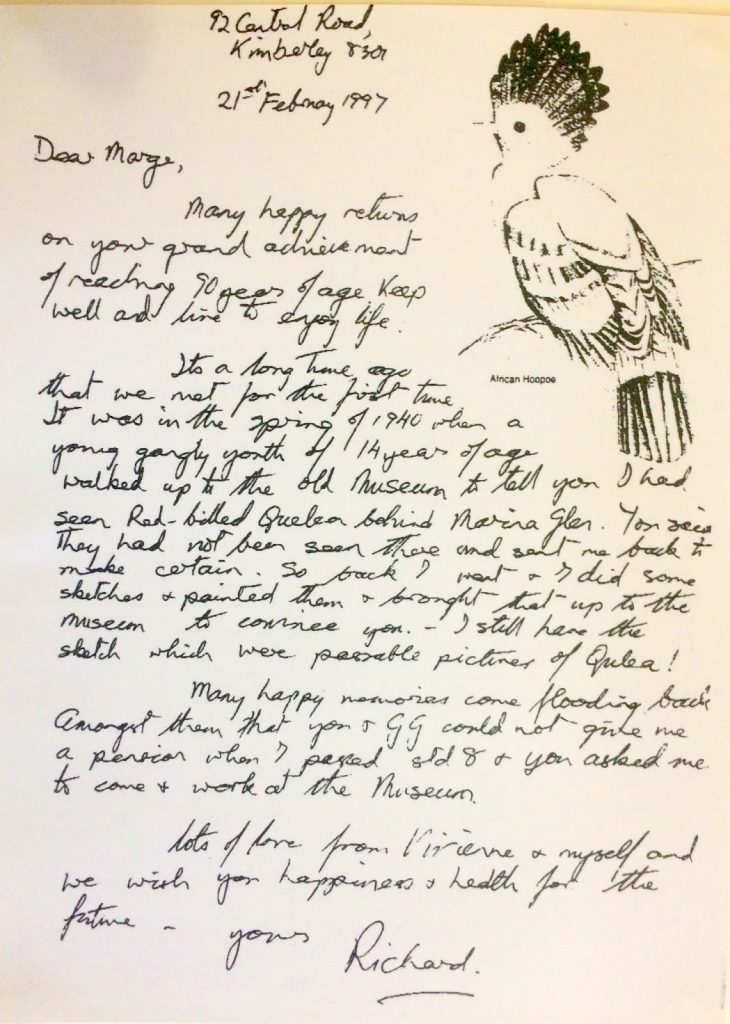 92 Central Road,
Kimberley 8301
21st February 1997
Dear Marge,
Many happy returns
on your grand achievement
of reaching 90 years of age Keep
well and live to enjoy life.
African Hoopoe
Its a long time ago
that we met for the first time.
It was in the spring of 1940 when a
young gangly youth of 14 years of age
walked up to the old Museum to tell you I had
seen Red-billed Quelea behind Marina Glen. You said
they had not been seen there and sent me back to
make certain. So back I went & I did some
sketches & painted them & brought that up to the
Museum to convince you. - I still have the
sketch which were passable pictures of Qulea!
Many happy memories come flooding back
Amongst them that you & GG could not give me
a pension when I passed std 8 & you asked me
to come & work at the Museum.
Lots of love from Vivienne & myself and
we wish you happiness & health for the
future - yours
Richard.